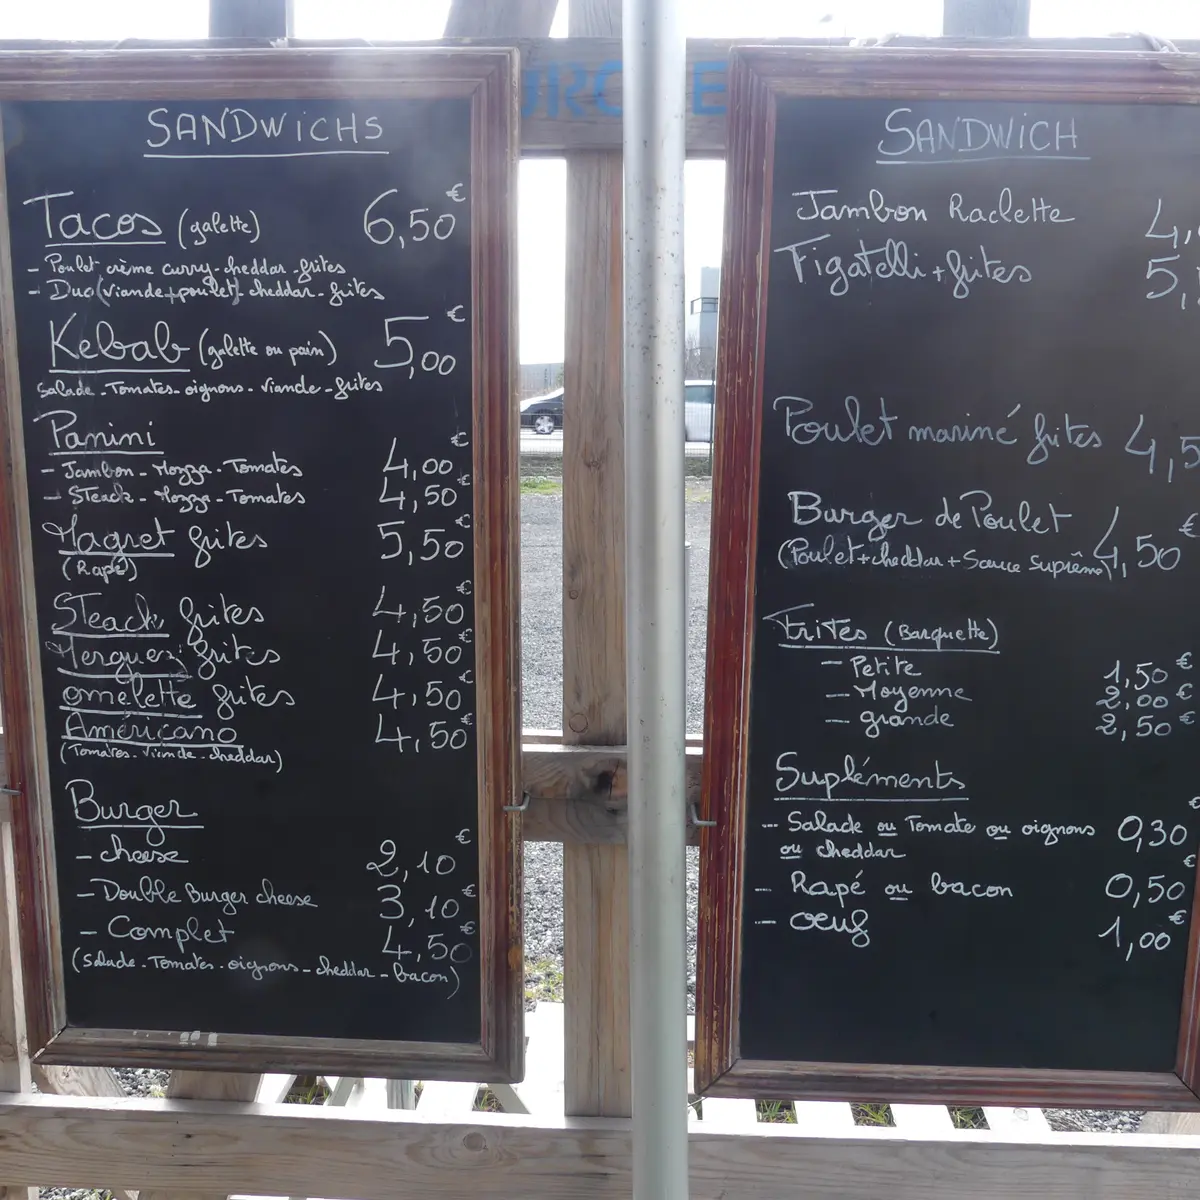 SANDWICHS
Tacos (galette) 6,50€
- Poulet crème curry-cheddar-frites
- Duo (viande+poulet)-cheddar-frites
Kebab (galette ou pain) 5,00€
Salade-Tomates-oignons-viande-frites
Panini
- Jambon-Mozza-Tomates 4,00€
- Steack-Mozza-Tomates 4,50€
Magret frites 5,50€
(Rapé)
Steack frites 4,50€
Merguez frites 4,50€
omelette frites 4,50€
Américano 4,50€
(Tomates-viande-cheddar)
Burger
- cheese 2,10€
- Double Burger cheese 3,10€
- Complet 4,50€
(Salade-Tomates-oignons-cheddar-bacon)
SANDWICH
Jambon Raclette 4,
Figatelli+frites 5,
Poulet mariné frites 4,5
Burger de Poulet 4,50€
(Poulet+cheddar+Sauce Suprême)
Frites (Barquette)
- Petite 1,50€
- Moyenne 2,00€
- grande 2,50€
Supléments
- Salade ou Tomate ou oignons 0,30€
ou cheddar
- Rapé ou bacon 0,50€
- oeuf 1,00€